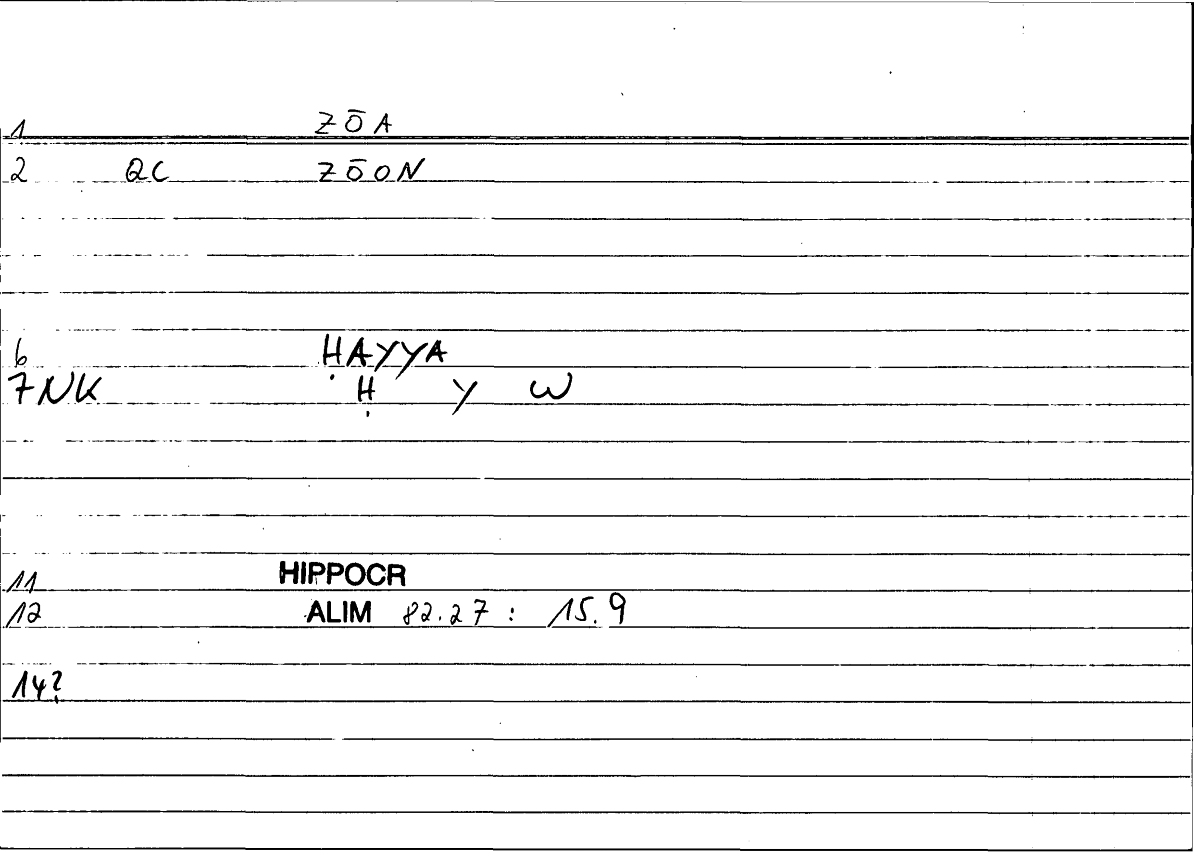 1 ZŌA
2 QC ZŌON
6 ḤAYYA
7 NK Ḥ Y W
11 HIPPOCR
12 ALIM 82.27 : 15.9
14?